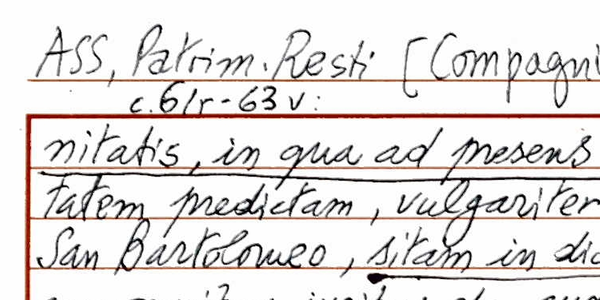 ASS, Patrim. Resti [Compagni
c. 61r-63v:
nitatis, in qua ad presens
tatem predictam, vulgariter
San Bartolomeo, sitam in dic